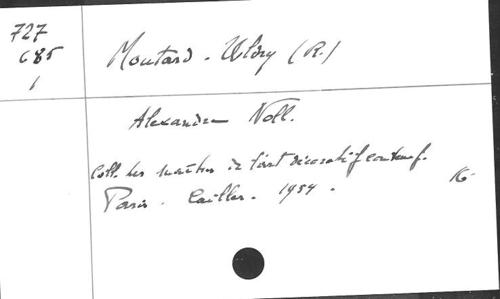 727
685
1
Moutard-Uldry (R.)
Alexandre Noll.
Coll. Les maîtres de l'art décoratif contemp.
Paris. Cailler. 1954.